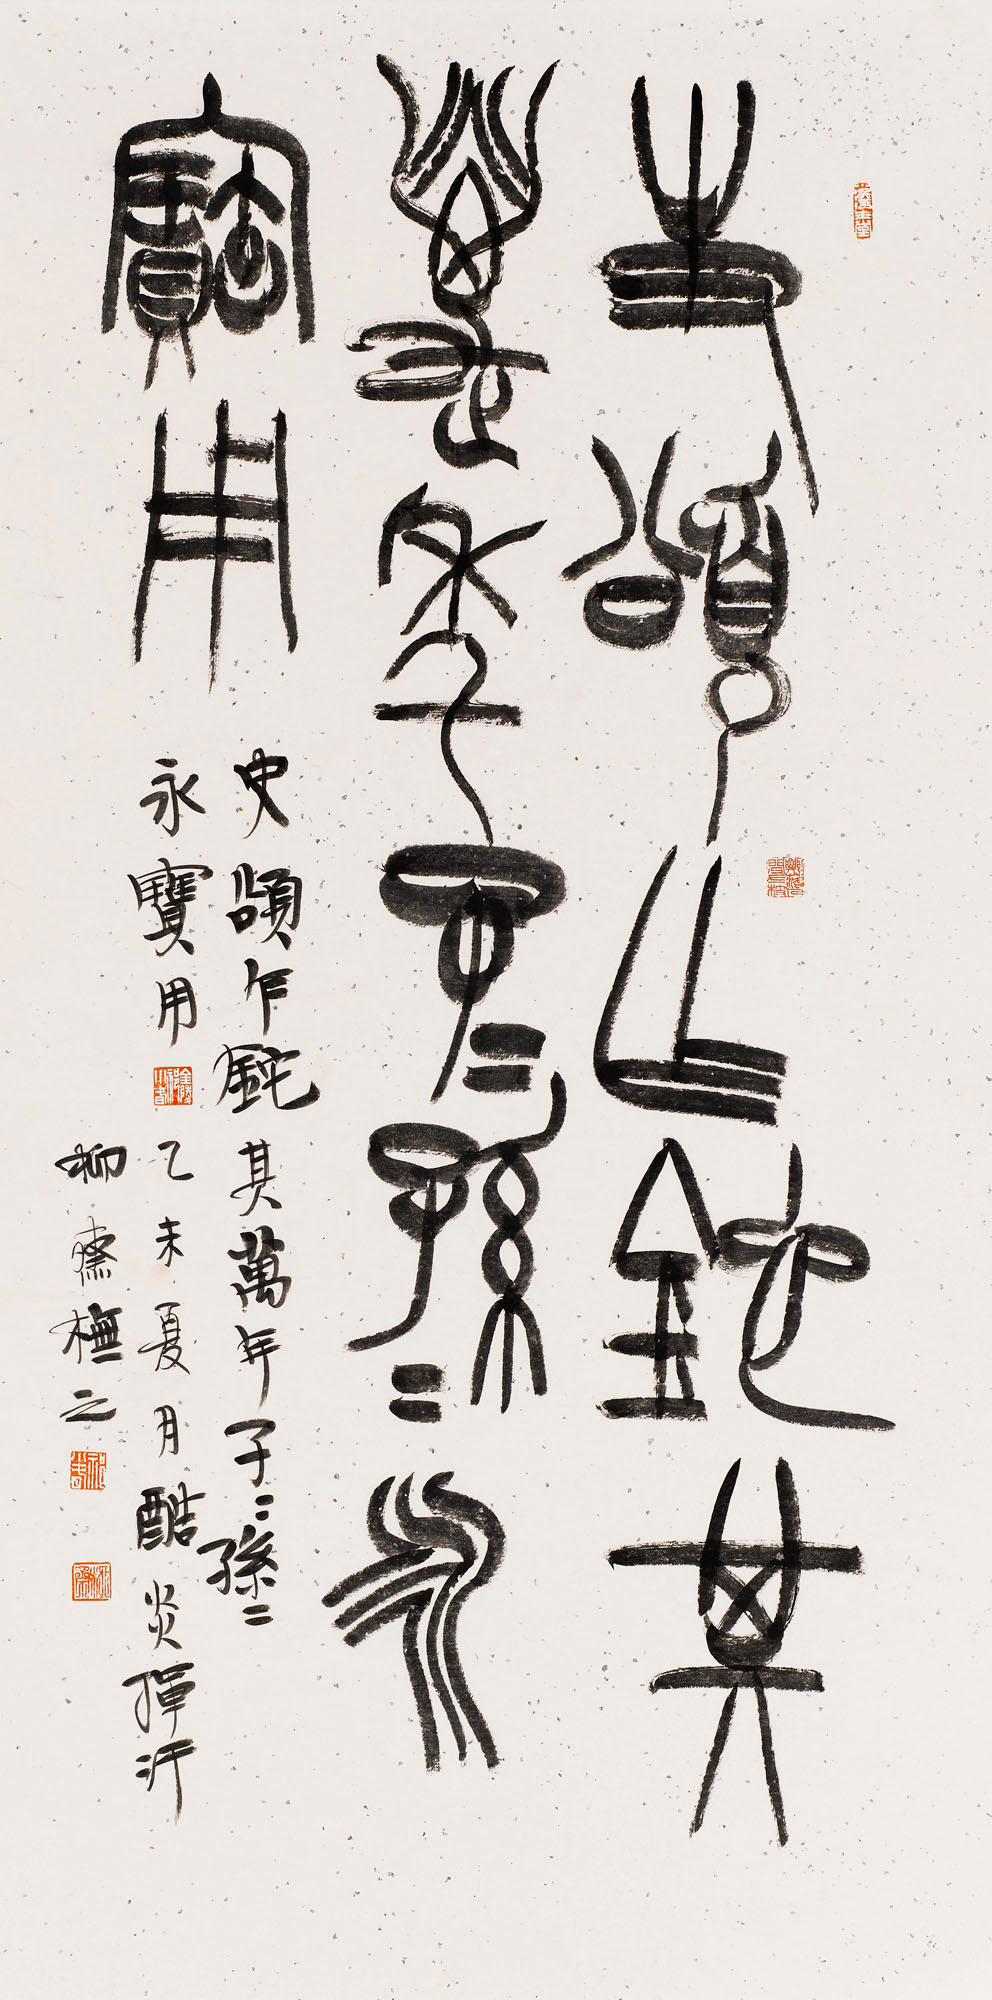 史頌乍鉈其
萬年子二孫二永
寶用
史頌乍鉈其萬年子二孫二
永寶用
乙未夏月酷炎揮汗
柳齋橅之